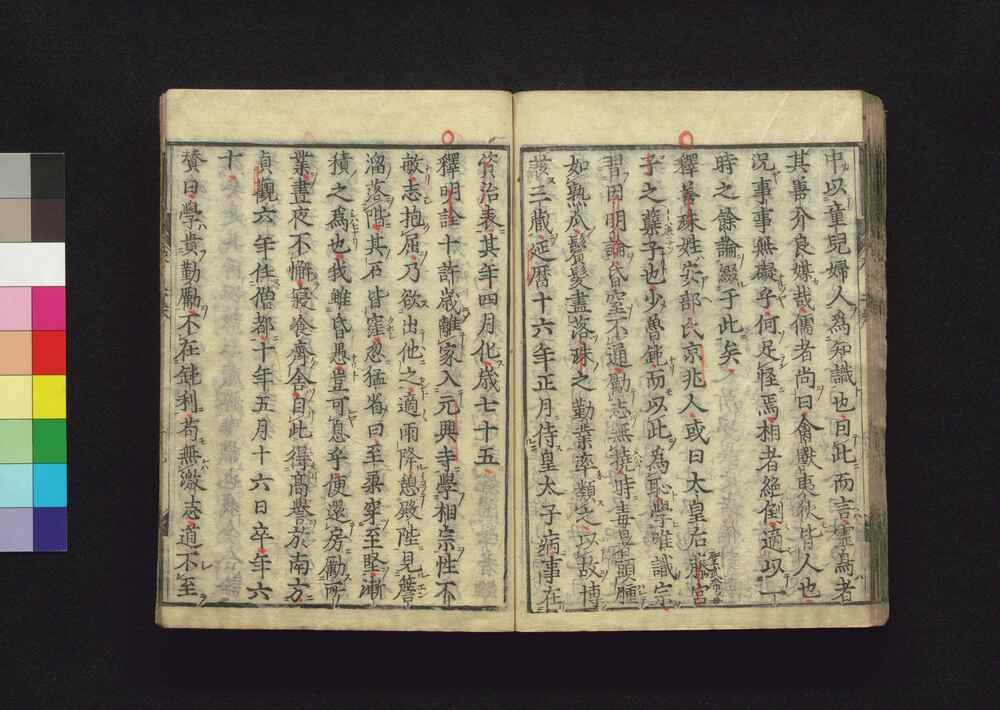 中以童兒婦人為知識也曰此而言靈為者
其善介良媒哉儒者尚曰禽獸夷狄皆人也
況事事無礙乎何足怪焉相者絕倒適以一
時之餘論綴于此矣
釋善珠姓安部氏京兆人或曰大皇后藤宮
子之孽子也少魯鈍而以此為恥學唯識宗
習因明論昏窒不通勵志無撓時毒暑頭腫
如熟瓜鬢髮盡落珠之勤業率類之以故博
該三藏延曆十六年正月侍皇太子病事在
資治表其年四月化歲七十五
釋明詮十許歲離家入元興寺學相宗性不
敏志抱屈乃欲出他之適雨降憩殿陛見簷
溜落階其石皆窪忽猛省曰至柔穿至堅漸
積之為也我雖昏愚豈可怠乎便還房勵所
業晝夜不懈寢飡齊舍自此得高譽於南方
貞觀六年任僧都十年五月十六日卒年六
十
贊曰學貴勤勵不在鈍利苟無激志道不至